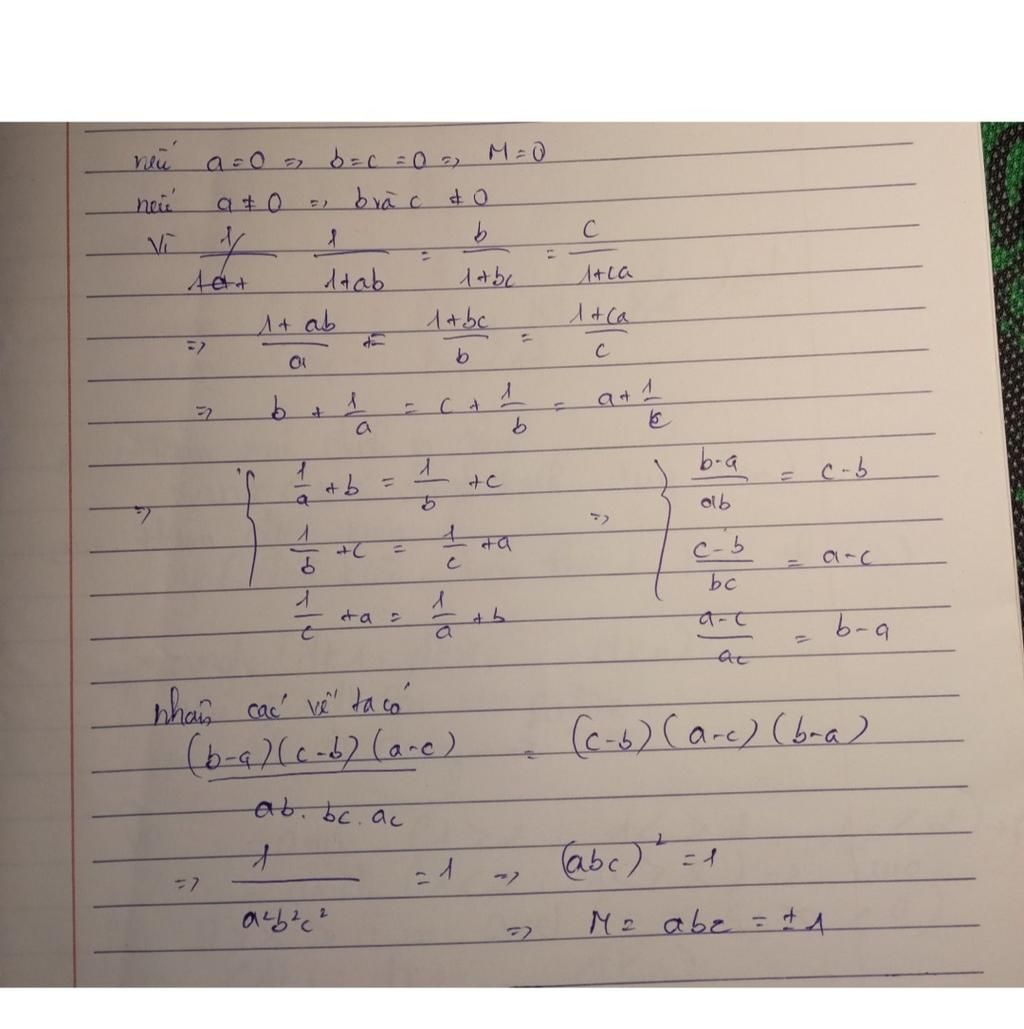 nếu a=0 => b=c=0 => M=0
nếu a≠0 => b và c ≠0
Vì 1/(1+ab) = b/(1+bc) = c/(1+ca)
=> (1+ab)/a = (1+bc)/b = (1+ca)/c
=> b + 1/a = c + 1/b = a + 1/c
=> { 1/a + b = 1/b + c => { (b-a)/ab = c-b
1/b + c = 1/c + a (c-b)/bc = a-c
1/c + a = 1/a + b (a-c)/ac = b-a
nhân các vế ta có
(b-a)(c-b)(a-c)/(ab.bc.ac) = (c-b)(a-c)(b-a)
=> 1/(a²b²c²) = 1 => (abc)² = 1
=> M = abc = ±1